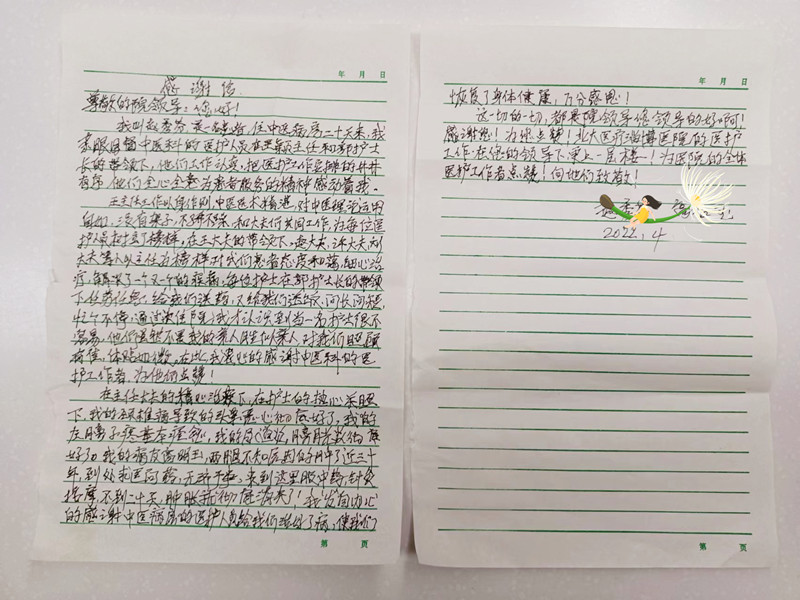 年 月 日
感谢信
尊敬的院领导：您好！
我叫 是一名患者，住中医病房二十天来，我
亲眼目睹中医科的医护人员在王 主任和郭护士
长的带领下，他们工作认真，把医护工作安排的井井
有序，他们全心全意为患者服务的精神感动着我。
王主任工作以身作则中医医术精湛，对中医理论运用
自如，没有架子，不 和大夫们共同工作，为每位医
护人员树立了榜样，在王大夫的带领下，赵大夫、许大夫、刘
大夫等人以主任为榜样对我们患者态度和蔼，细心治
疗，解决了一个又一个的疾病，每位护士在郭护士长的带领
下任劳任怨，给我们送药，又给我们送饭，问长问短，
忙个不停，通过决住院，我才认识到当一名护士很不
容易，他们虽然不是我的亲人胜似亲人，对我们照顾
有佳，体贴切微，在此我衷心的感谢中医科的医
护工作者，为他们点赞！
在主任大夫的精心治疗下，在护士的热心关照
下，我的颈椎病导致的 心 好了，我的
左 子疼基本痊愈，我的 ，
好了。我的病友高明玉，两腿不知原因的肿了近三十
年，到处求医问药，无济于事，来到这里服中药，针灸
按摩不到二十天，肿胀 消失了！我发自内心
的感谢中医病房的医护人员给我们治好了病，使我们
第 页
年 月 日
恢复了身体健康，万分感恩！
这一切的一切，都是院领导您领导的好啊！
感谢您！为您点赞！北大医疗淄博医院的医护
工作在您的领导下更上一层楼！为医院的全体
医护工作者点赞！向他们致敬！
2022.4
第 页